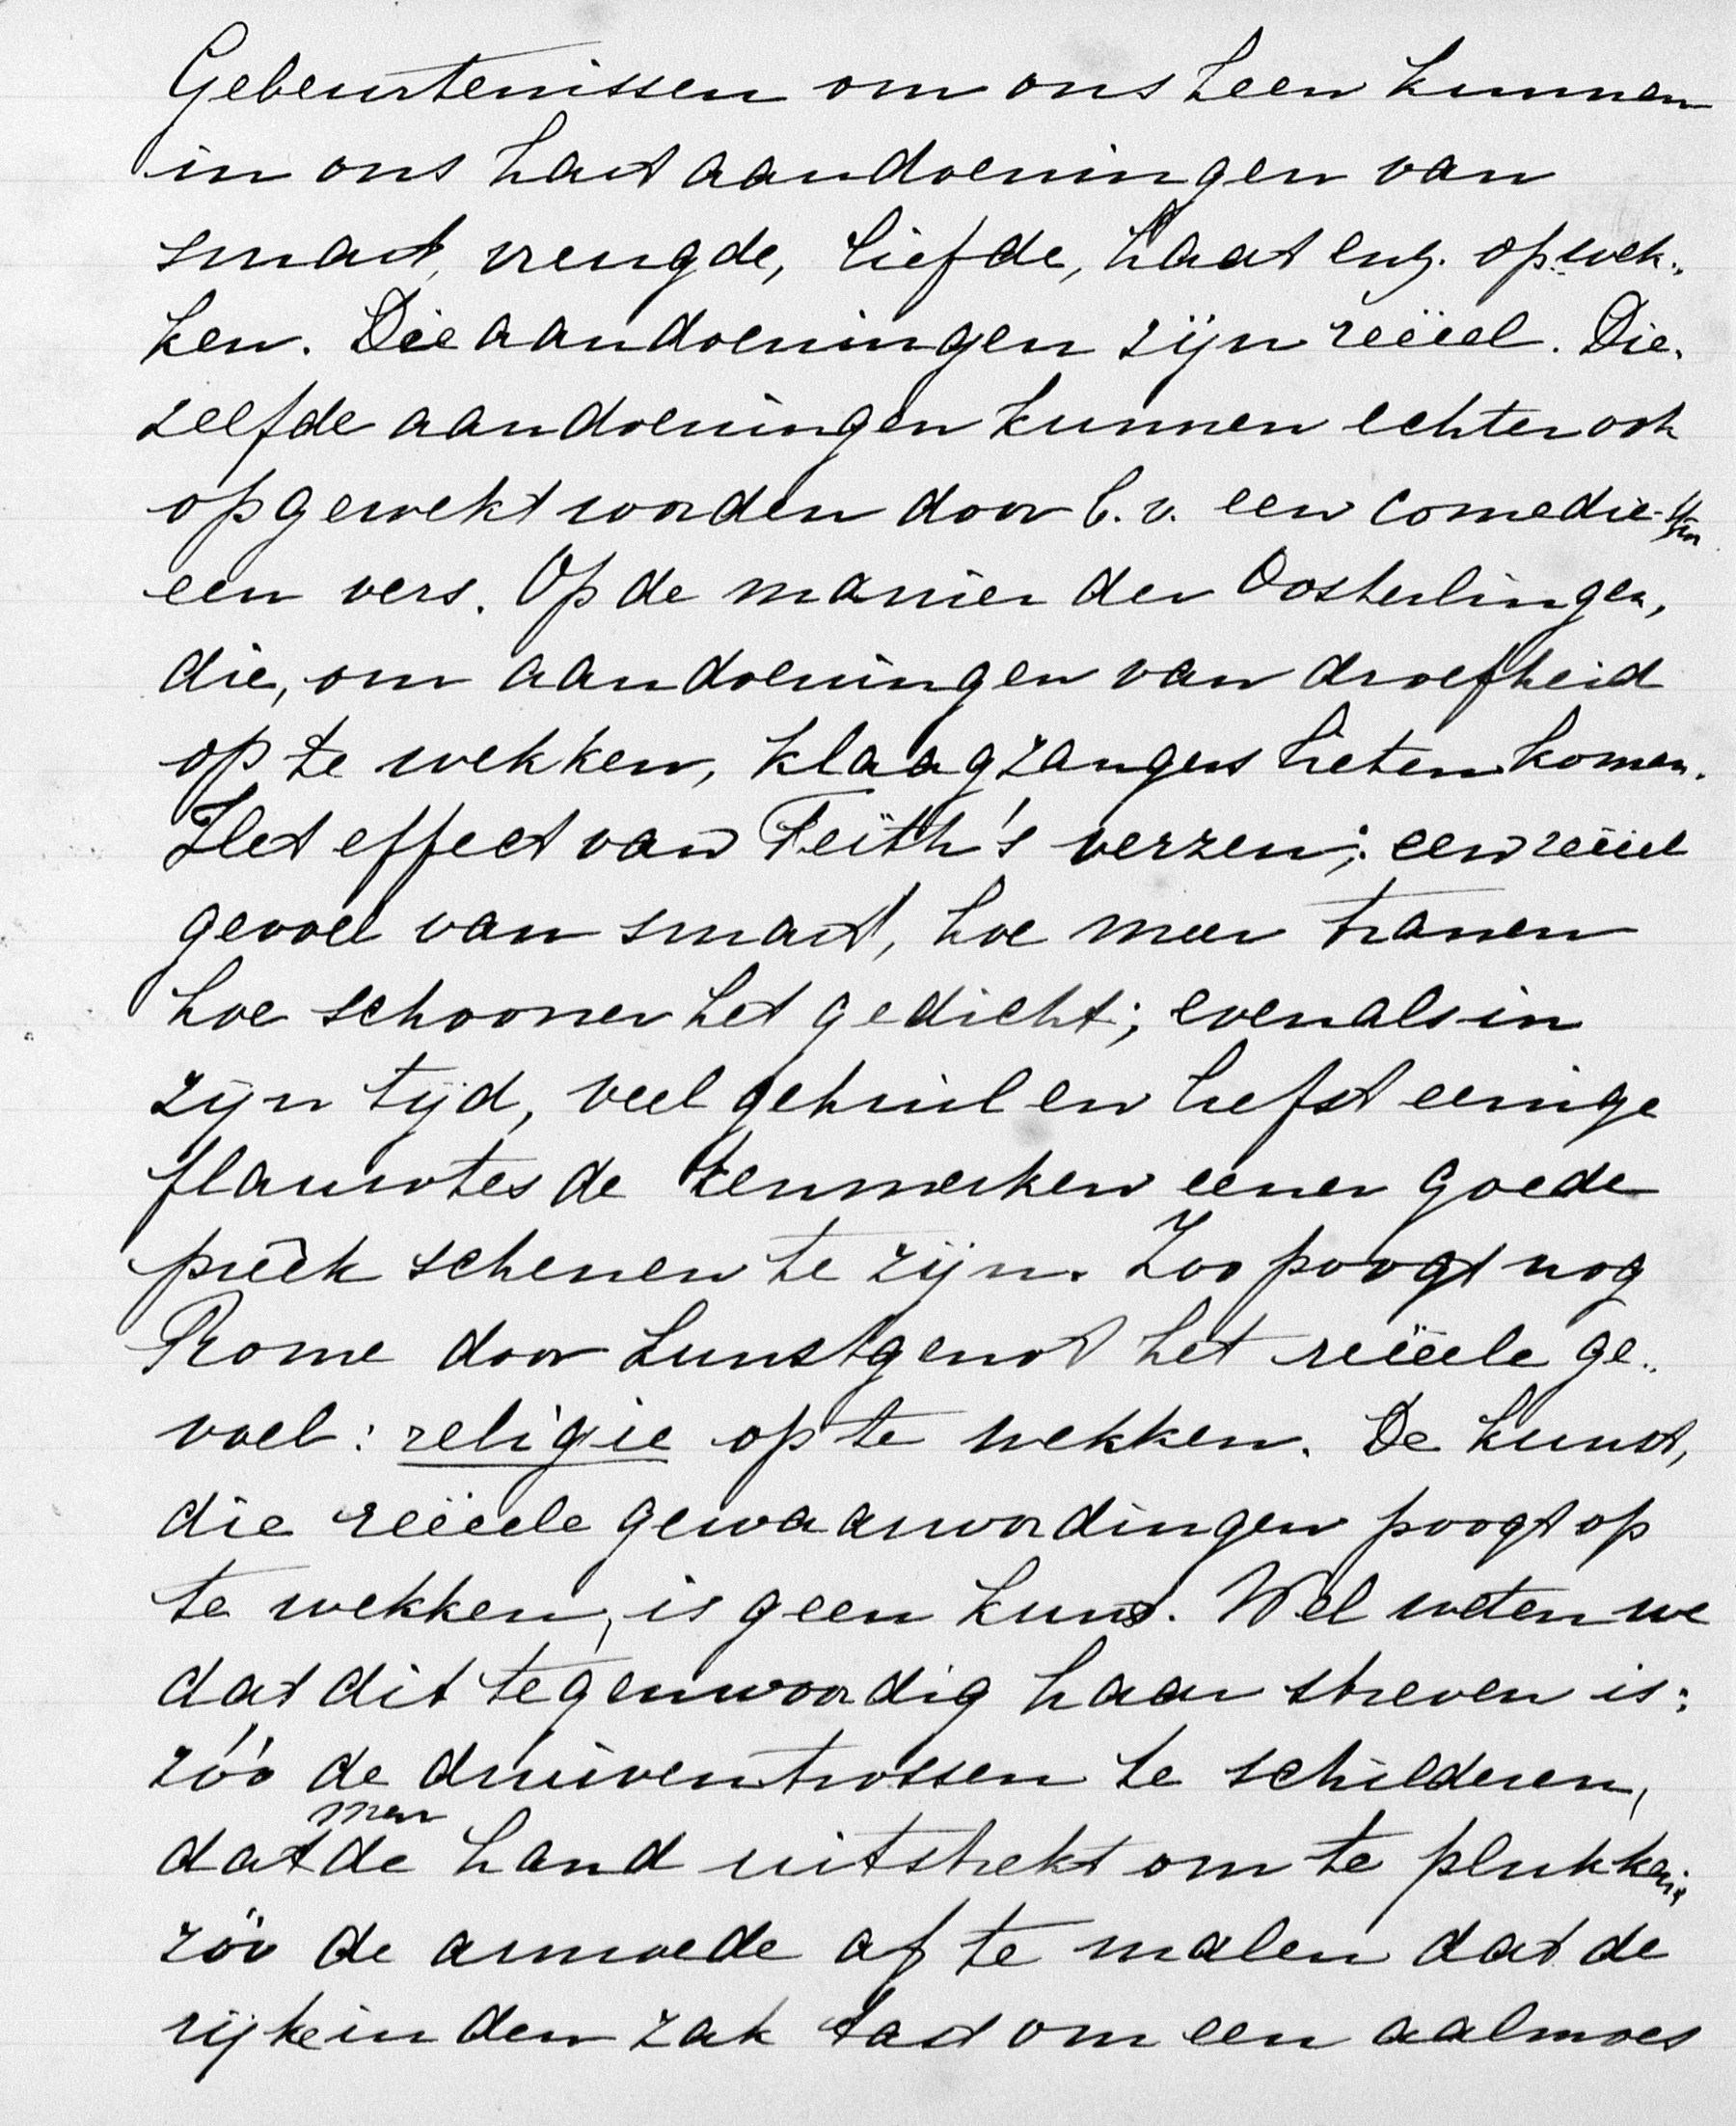 Gebeurtenissen om ons heen kunnen
in ons hart aandoeningen van
smart, vreugde, liefde, haat enz. opwek-
ken. Die aandoeningen zijn reëel. Die-
zelfde aandoeningen kunnen echter ook
opgewekt worden door b.v. een comedie of
een vers. Op de manier der Oosterlingen,
die, om aandoeningen van droefheid
op te wekken, klaagzangers lieten komen.
Het effect van Feith's verzen; een reëel
gevoel van smart, hoe meer tranen
hoe schooner het gedicht; evenals in
zijn tijd, veel gehuil en liefst eenige
flauwtes de kenmerken eener goede
preêk schenen te zijn. Zoo poogt nog
Rome door kunstgenot het reëele ge-
voel: religie op te wekken. De kunst,
die reëele gewaarwordingen poogt op
te wekken, is geen kunst. Wel weten we
dat dit tegenwoordig haar streven is:
zóó de druiventrossen te schilderen,
dat men de hand uitstrekt om te plukken;
zóó de armoede af te malen dat de
rijke in den zak tast om een aalmoes